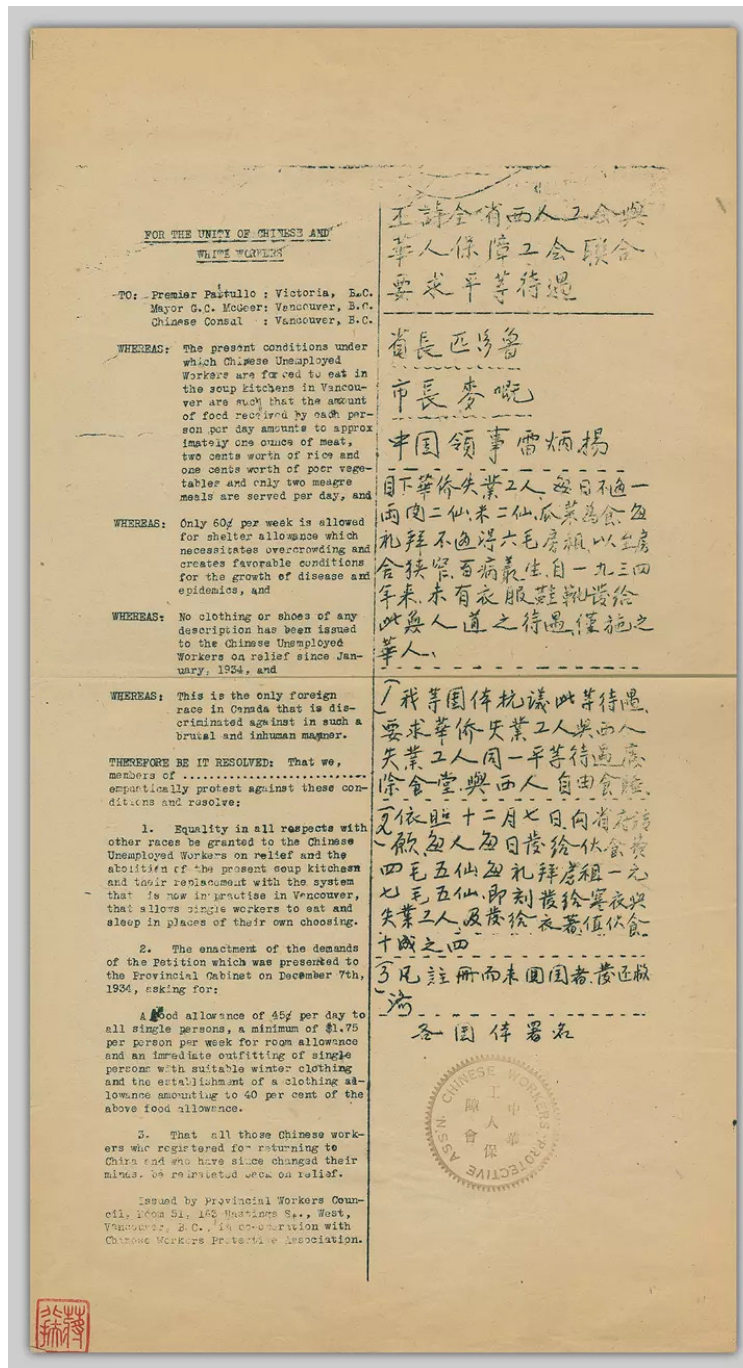 FOR THE UNITY OF CHINESE AND
WHITE WORKERS
TO: Premier Pattullo : Victoria, B.C.
Mayor G.C. McGeer: Vancouver, B.C.
Chinese Consul : Vancouver, B.C.
WHEREAS: The present conditions under
which Chinese Unemployed
Workers are forced to eat in
the soup kitchens in Vancou-
ver are such that the amount
of food received by each per-
son per day amounts to approx
imately one ounce of meat,
two cents worth of rice and
one cents worth of poor vege-
tables and only two meagre
meals are served per day, and
WHEREAS: Only 60¢ per week is allowed
for shelter allowance which
necessitates overcrowding and
creates favorable conditions
for the growth of disease and
epidemics, and
WHEREAS: No clothing or shoes of any
description has been issued
to the Chinese Unemployed
Workers on relief since Jan-
uary, 1934, and
WHEREAS: This is the only foreign
race in Canada that is dis-
criminated against in such a
brutal and inhuman manner.
THEREFORE BE IT RESOLVED: That we,
members of ............................
emphatically protest against these con-
ditions and resolve:
1. Equality in all respects with
other races be granted to the Chinese
Unemployed Workers on relief and the
abolition of the present soup kitchen
and their replacement with the system
that is now in practise in Vancouver,
that allows single workers to eat and
sleep in places of their own choosing.
2. The enactment of the demands
of the Petition which was presented to
the Provincial Cabinet on December 7th,
1934, asking for:
A food allowance of 45¢ per day to
all single persons, a minimum of $1.75
per person per week for room allowance
and an immediate outfitting of single
persons with suitable winter clothing
and the establishment of a clothing al-
lowance amounting to 40 per cent of the
above food allowance.
3. That all those Chinese work-
ers who registered for returning to
China and who have since changed their
minds, be reinstated back on relief.
Issued by Provincial Workers Coun-
cil, Room 51, 163 Hastings St., West,
Vancouver, B.C., in co-operation with
Chinese Workers Protective Association.
全省西人工会與
華人保障工会联合
要求平等待遇
省長匹多魯
市長麥嘅
中国領事雷炳揚
目下華侨失業工人、每日不过一
两肉二仙、米二仙、瓜菜為食、每
礼拜不过得六毛房租、以至房
舍狭窄、百病叢生、自一九三四
年来、未有衣服鞋靴发给
此無人道之待遇、僅施之
華人、
1)我等团体抗議此等待遇、
要求華侨失業工人與西人
失業工人同一平等待遇、廢
除食堂、與西人自由食
2)依照十二月七日、向省府請
願、每人每日发给伙食費
四毛五仙、每礼拜房租一元
七毛五仙、即刻发给寒衣與
失業工人、及发给衣著值伙食
十成之四
3)凡註冊而未回国者、发还救
济
各团体署名
CHINESE WORKERS PROTECTIVE ASS'N.
中華工人保障會